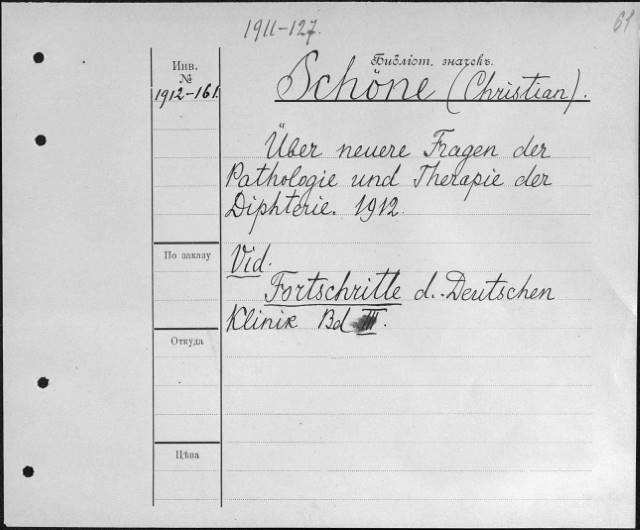 1911-127.
61
Библіот. значекъ.
Инв.
№
1912-161.
Schöne (Christian).
Über neuere Fragen der
Pathologie und Therapie der
Diphterie. 1912.
По заказу
Vid.
Fortschritte d. Deutschen
Klinik Bd III.
Откуда
Цѣна